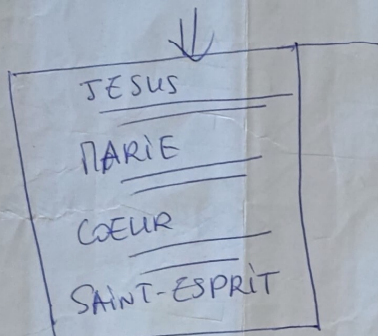 JESUS
MARIE
COEUR
SAINT-ESPRIT